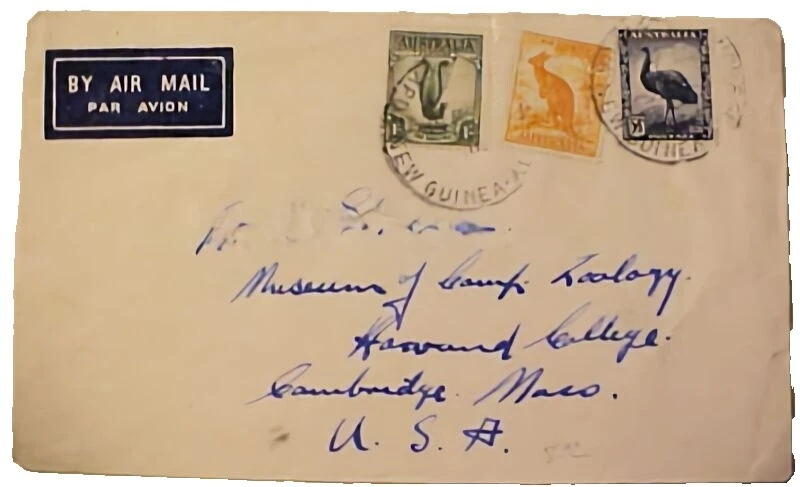 BY AIR MAIL
PAR AVION
AUSTRALIA
AUSTRALIA
AUSTRALIA
NEW GUINEA
NEW GUINEA
Museum of Comp. Zoology.
Harvard College.
Cambridge. Mass.
U. S. A.